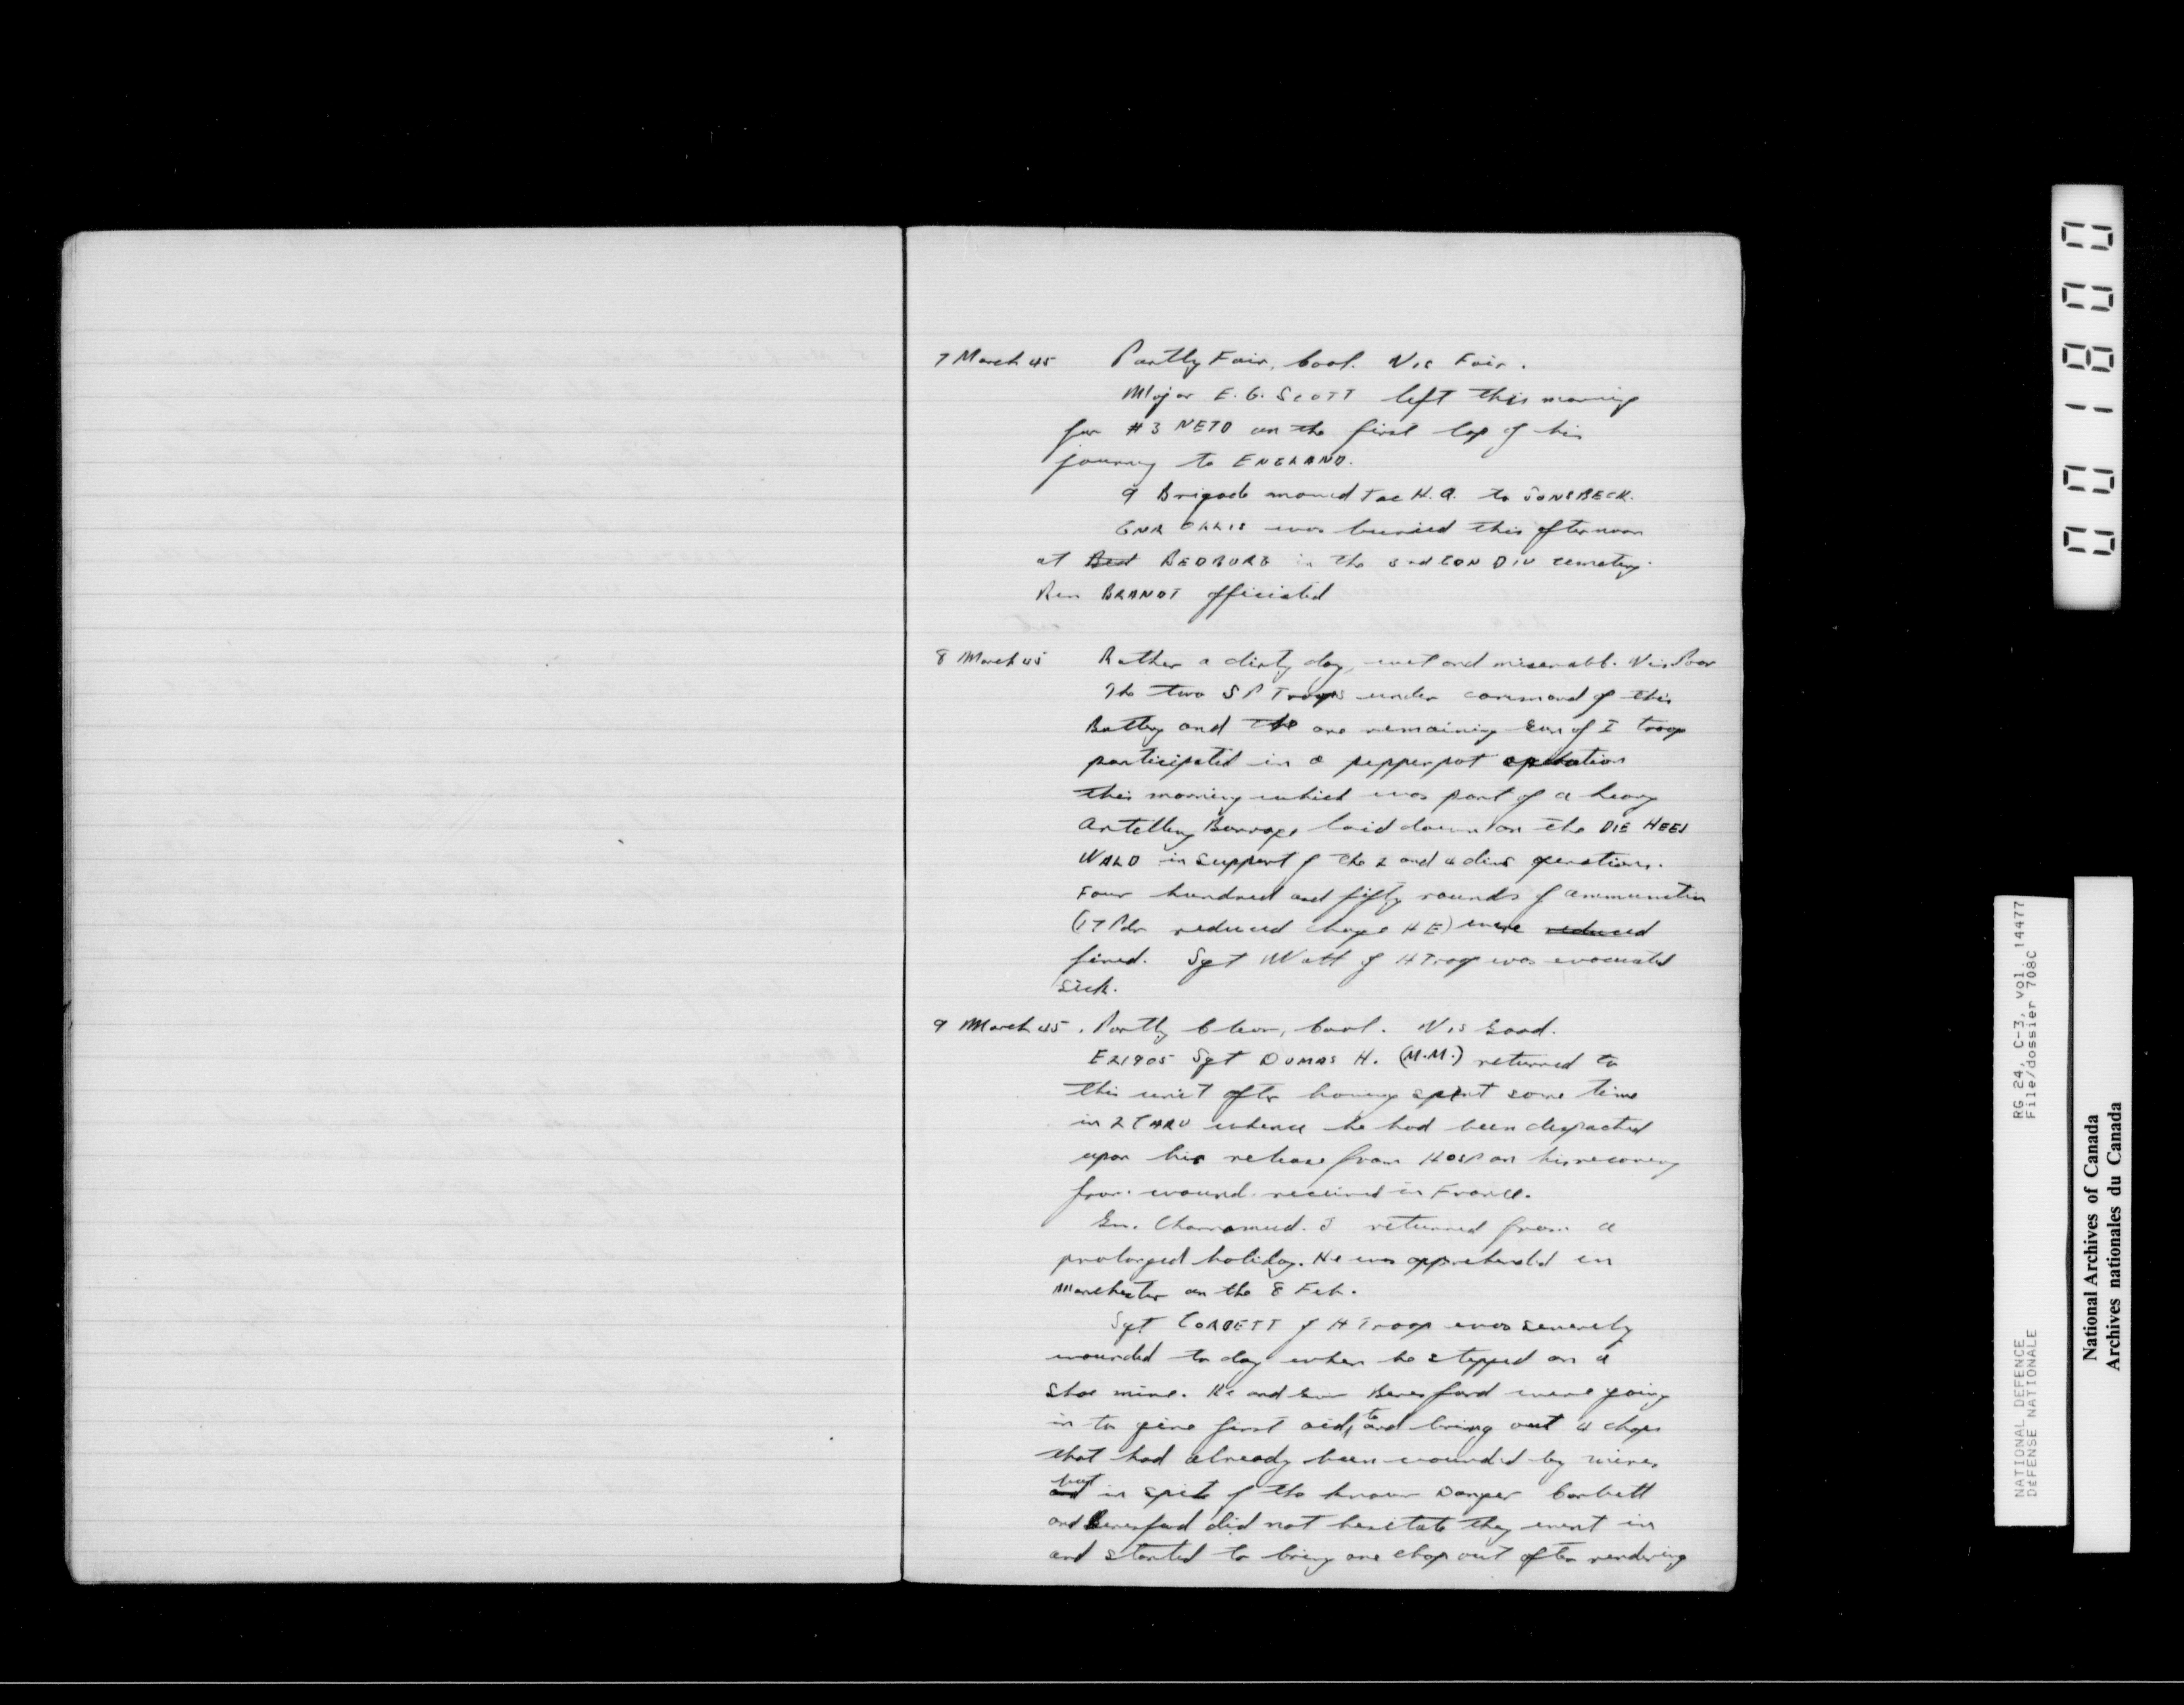 7 March 45 Partly Fair, Cool. Vis Fair.
Major E.G. SCOTT left this morning
for #3 NETD on the first lap of his
journey to ENGLAND.
9 Brigade moved Tac H.Q. to SONSBECK.
GNR OLLIS was buried this afternoon
at Bed BEDBURG in the 3rd CDN DIV cemetery.
Rev BRANDT officiated
8 March 45 Rather a dirty day, wet and miserable. Vis Poor
The two SP Troops under command of this
Battery and the one remaining Gun of I troop
participated in a pepperpot operation
this morning which was part of a heavy
Artellery Barrage laid down on the DIE HEES
WALD in support of the 2 and 4 divs operations.
Four hundred and fifty rounds of ammunition
(17 Pdr reduced charge HE) were reduced
fired. Sgt Watt of H Troop was evacuated
sick.
9 March 45. Partly Clear, Cool. Vis Good.
E21905 Sgt DUMAS H. (M.M.) returned to
this unit after having spent some time
in 2 CARU whence he had been dispatched
upon his release from HOSP on his recovery
from wound received in France.
Gnr. J returned from a
prolonged holiday. He was apprehended in
Manchester on the 8 Feb.
Sgt CORBETT of H Troop was severely
wounded to day when he stepped on a
shoe mine. He and Gnr Beresford were going
in to give first aid, to and bring out 4 chaps
that had already been wounded by mines
and but in spite of the known Danger Corbett
and Beresford did not hesitate they went in
and started to bring one chap out after rendering
00 1800
RG 24, C-3, vol. 14477
File/dossier 708C
NATIONAL DEFENCE
DÉFENSE NATIONALE
National Archives of Canada
Archives nationales du Canada